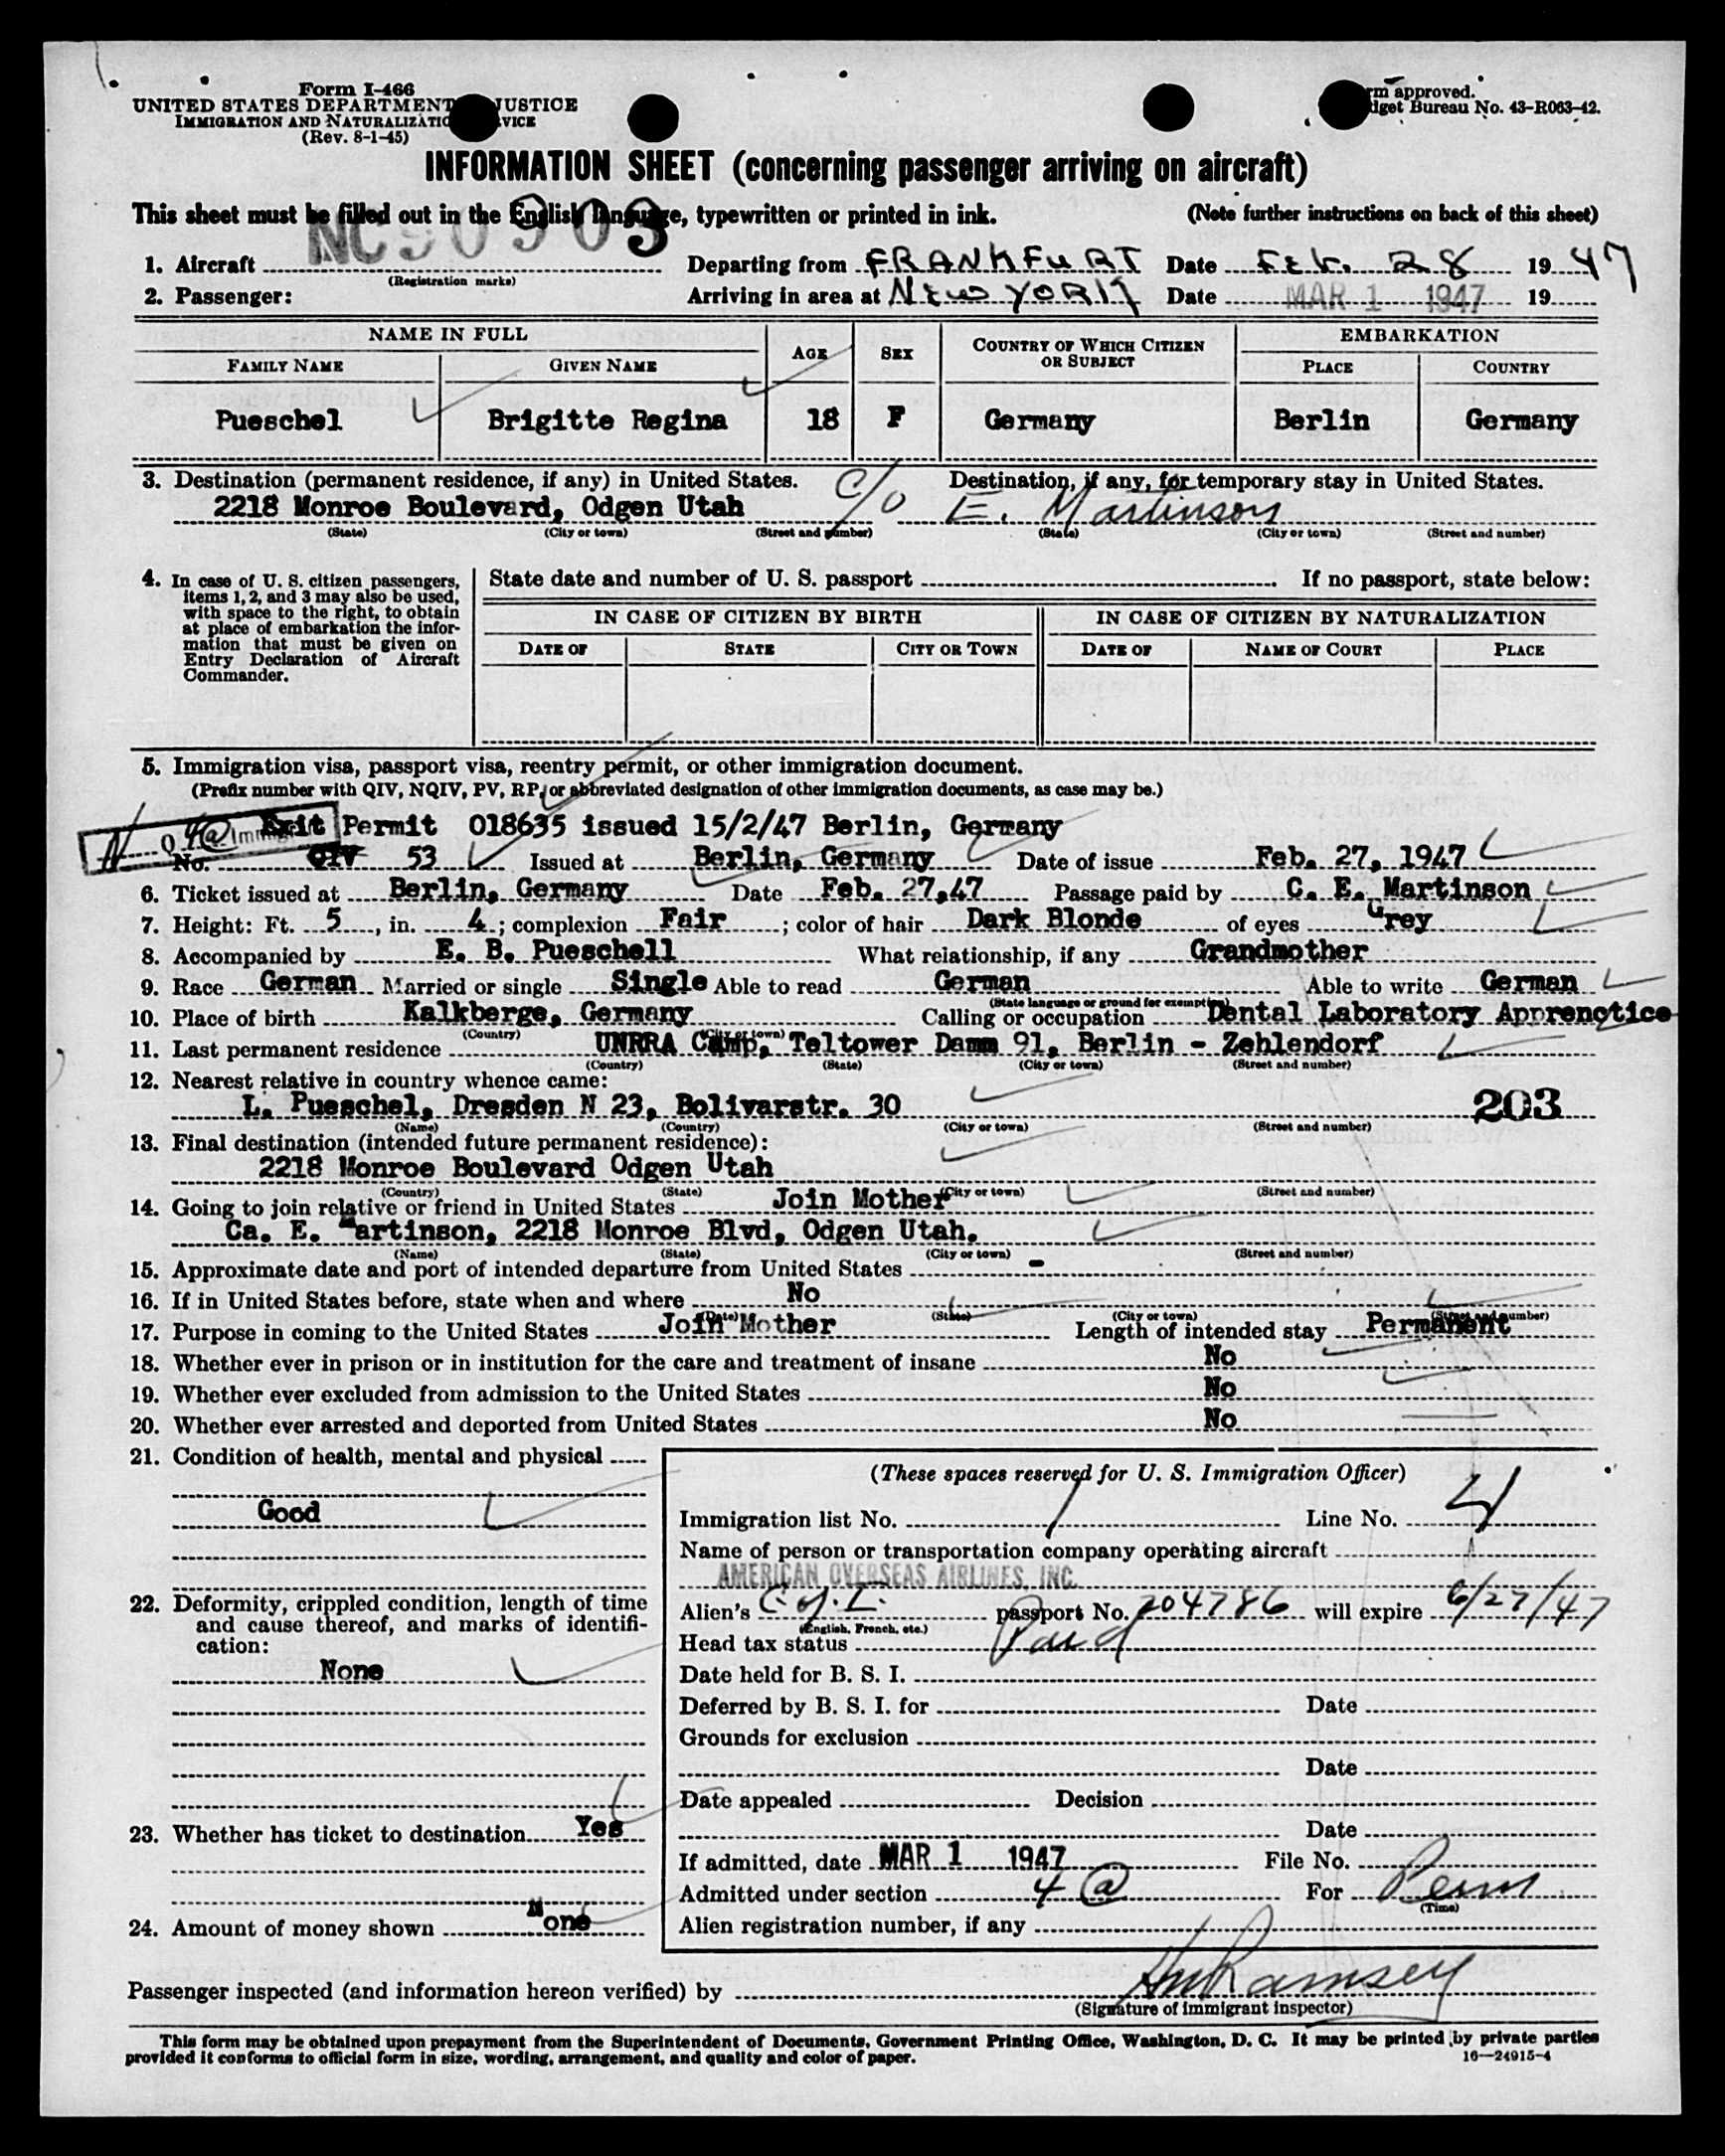 Form I-466
UNITED STATES DEPARTMENT JUSTICE
IMMIGRATION AND NATURALIZATIO VICE
(Rev. 8-1-45)
rm approved.
dget Bureau No. 43-R063-42.
INFORMATION SHEET (concerning passenger arriving on aircraft)
This sheet must be filled out in the English language, typewritten or printed in ink. (Note further instructions on back of this sheet)
1. Aircraft NC90903 Departing from FRANKFURT Date Feb. 28 1947
(Registration marks)
2. Passenger: Arriving in area at NEW YORK Date MAR 1 1947 19
NAME IN FULL AGE SEX COUNTRY OF WHICH CITIZEN OR SUBJECT EMBARKATION
FAMILY NAME GIVEN NAME PLACE COUNTRY
Pueschel Brigitte Regina 18 F Germany Berlin Germany
3. Destination (permanent residence, if any) in United States. Destination, if any, for temporary stay in United States.
2218 Monroe Boulevard, Odgen Utah C/O E. Martinson
(State) (City or town) (Street and number) (State) (City or town) (Street and number)
4. In case of U. S. citizen passengers, items 1, 2, and 3 may also be used, with space to the right, to obtain at place of embarkation the information that must be given on Entry Declaration of Aircraft Commander.
State date and number of U. S. passport If no passport, state below:
IN CASE OF CITIZEN BY BIRTH IN CASE OF CITIZEN BY NATURALIZATION
DATE OF STATE CITY OR TOWN DATE OF NAME OF COURT PLACE
5. Immigration visa, passport visa, reentry permit, or other immigration document.
(Prefix number with QIV, NQIV, PV, RP, or abbreviated designation of other immigration documents, as case may be.)
Exit Permit 018635 issued 15/2/47 Berlin, Germany
N Q 4@ Immig
No. QIV 53 Issued at Berlin, Germany Date of issue Feb. 27, 1947
6. Ticket issued at Berlin, Germany Date Feb. 27,47 Passage paid by C. E. Martinson
7. Height: Ft. 5, in. 4; complexion Fair; color of hair Dark Blonde of eyes Grey
8. Accompanied by E. B. Pueschell What relationship, if any Grandmother
9. Race German Married or single Single Able to read German Able to write German
(State language or ground for exemption)
10. Place of birth Kalkberge, Germany Calling or occupation Dental Laboratory Apprenctice
(Country) (City or town)
11. Last permanent residence UNRRA Camp, Teltower Damm 91, Berlin - Zehlendorf
(Country) (State) (City or town) (Street and number)
12. Nearest relative in country whence came:
L. Pueschel, Dresden N 23, Bolivarstr. 30 203
(Name) (Country) (City or town) (Street and number)
13. Final destination (intended future permanent residence):
2218 Monroe Boulevard Odgen Utah
(Country) (State) (City or town) (Street and number)
14. Going to join relative or friend in United States Join Mother
Ca. E. Martinson, 2218 Monroe Blvd, Odgen Utah.
(Name) (State) (City or town) (Street and number)
15. Approximate date and port of intended departure from United States -
16. If in United States before, state when and where No
(Date) (State) (City or town) (Street and number)
17. Purpose in coming to the United States Join Mother Length of intended stay Permanent
18. Whether ever in prison or in institution for the care and treatment of insane No
19. Whether ever excluded from admission to the United States No
20. Whether ever arrested and deported from United States No
21. Condition of health, mental and physical
Good
22. Deformity, crippled condition, length of time and cause thereof, and marks of identification:
None
23. Whether has ticket to destination Yes
24. Amount of money shown None
(These spaces reserved for U. S. Immigration Officer)
Immigration list No. 1 Line No. 4
Name of person or transportation company operating aircraft
AMERICAN OVERSEAS AIRLINES, INC.
Alien's passport No. 204786 will expire 6/27/47
(English, French, etc.)
Head tax status Paid
Date held for B. S. I.
Deferred by B. S. I. for Date
Grounds for exclusion
Date
Date appealed Decision
Date
If admitted, date MAR 1 1947 File No.
Admitted under section 4 @ For Perm
(Time)
Alien registration number, if any
Passenger inspected (and information hereon verified) by Ramsey
(Signature of immigrant inspector)
This form may be obtained upon prepayment from the Superintendent of Documents, Government Printing Office, Washington, D. C. It may be printed by private parties
provided it conforms to official form in size, wording, arrangement, and quality and color of paper. 16—24915-4